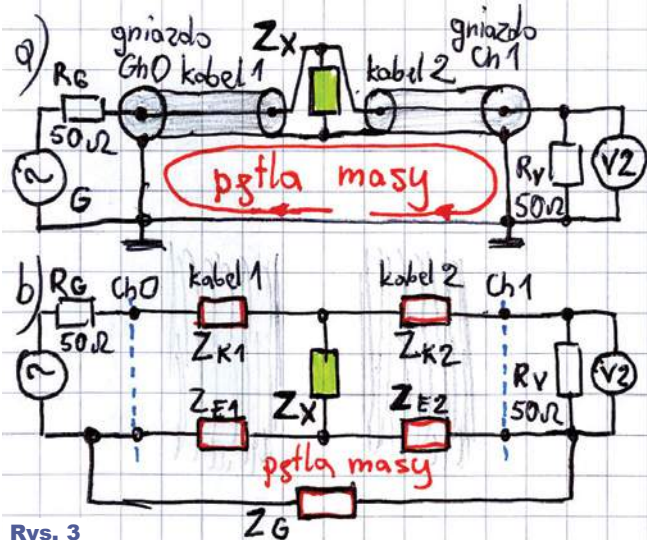 a)
gniazdo
Ch0
kabel 1
ZX
kabel 2
gniazdo
Ch1
RG
50Ω
G
~
pętla masy
RV
50Ω
V2
b)
RG
50Ω
~
Ch0
kabel 1
ZK1
kabel 2
ZK2
Ch1
ZE1
ZX
ZE2
RV
50Ω
V2
pętla masy
ZG
Rys. 3